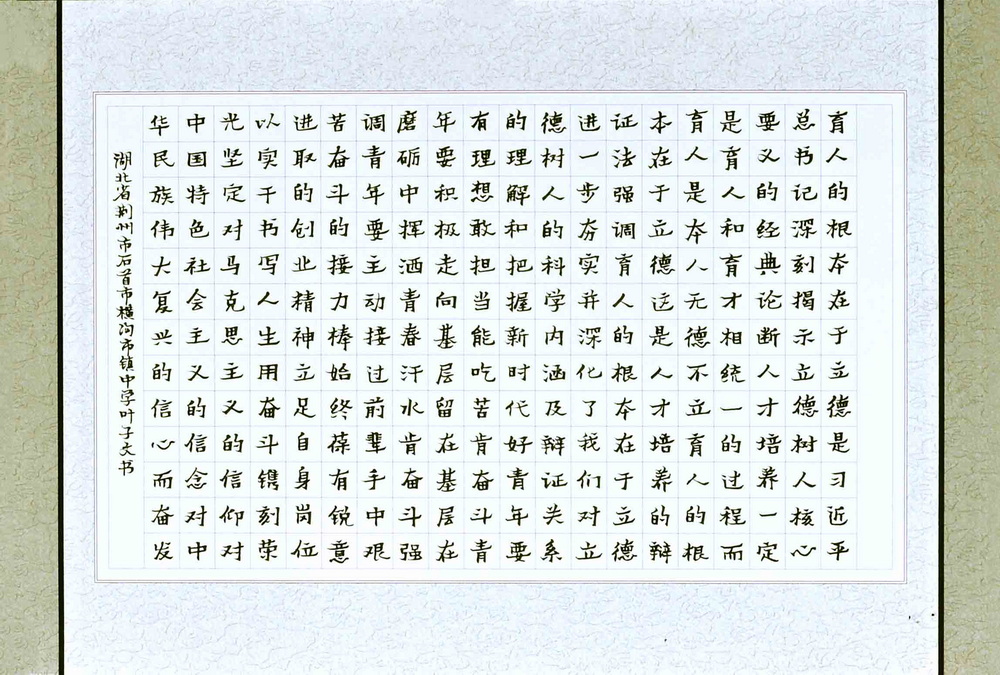 育人的根本在于立德是习近平
总书记深刻揭示立德树人核心
要义的经典论断人才培养一定
是育人和育才相统一的过程而
育人是本人无德不立育人的根
本在于立德这是人才培养的辩
证法强调育人的根本在于立德
进一步夯实并深化了我们对立
德树人的科学内涵及辩证关系
的理解和把握新时代好青年要
有理想敢担当能吃苦肯奋斗青
年要积极走向基层留在基层在
磨砺中挥洒青春汗水肯奋斗强
调青年要主动接过前辈手中艰
苦奋斗的接力棒始终葆有锐意
进取的创业精神立足自身岗位
以实干书写人生用奋斗镌刻荣
光坚定对马克思主义的信仰对
中国特色社会主义的信念对中
华民族伟大复兴的信心而奋发
湖北省荆州市石首市横沟市镇中学叶子文书